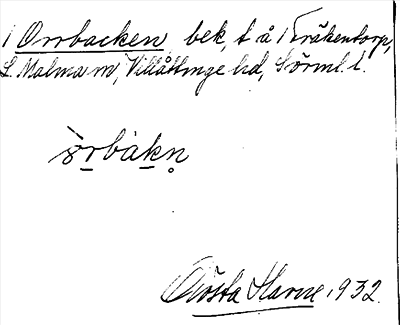 1 Orrbacken, bek, t å Kråkentorp,
L. Malma sn, Villåttinge hd, Sörml. l.
òrbàkn̥
Gösta Slarne, 1932.